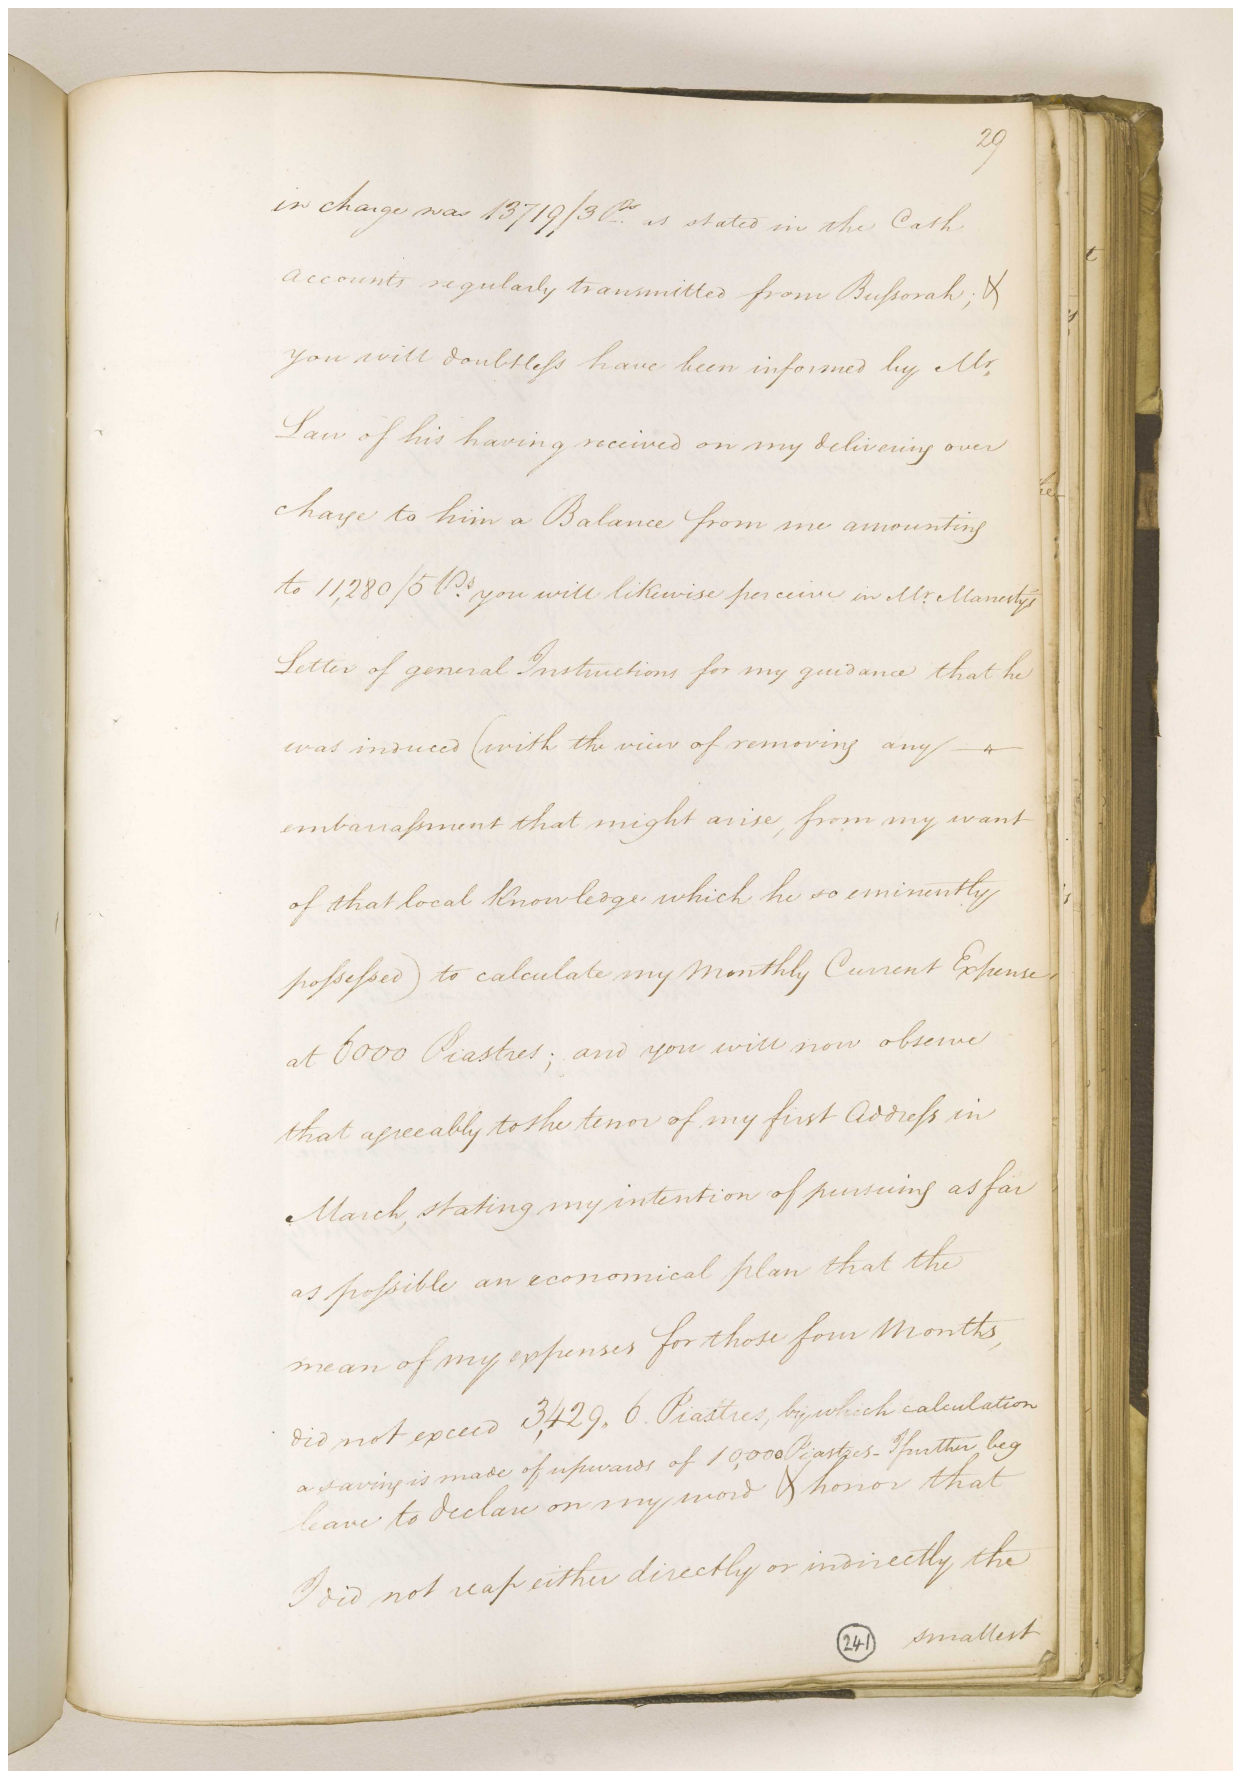 29
in charge was 13719/3 Ps. as stated in the Cash
accounts regularly transmitted from Bußorah; &
you will doubtleſs have been informed by Mr.
Law of his having received on my delivering over
charge to him a Balance from me amounting
to 11,280/5 Ps. you will likewise perceive in Mr. Manestys
Letter of general Instructions for my guidance that he
was induced (with the view of removing any
embarraſsment that might arise, from my want
of that local Knowledge which he so eminently
poſseſsed) to calculate my Monthly Current Expense
at 6000 Piastres; and you will now observe
that agreeably to the tenor of my first Addreſs in
March, stating my intention of pursuing as far
as poſsible an economical plan that the
mean of my expenses for those four Months,
did not exceed 3,429. 6. Piastres, by which calculation
a saving is made of upwards of 10,000 Piastres - I further beg
leave to declare on my word & honor that
I did not reap either directly or indirectly the
241 smallest